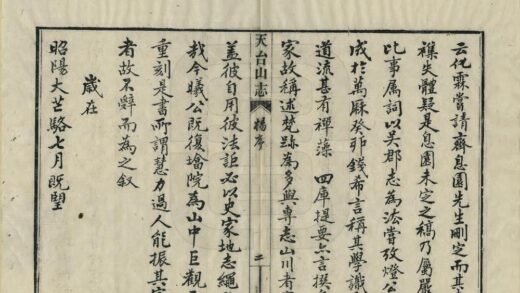 云化霖嘗請齊息園先生刪定而其
襍失體疑是息園未定之稿乃屬嚴
此事属詞以吴郡志為法嘗攷燈公
成於萬厤癸卯錢希言稱其學識
道流甚有禪藻 四庫提要亦言撰
家故稱述梵跡為多與專志山川者
天台山志 楊序 二
蓋彼自用彼法詎必以史家地志繩
哉今曦公既復墖院為山中巨觀
重刻是書所謂慧力過人能振其宗
者故不辭而為之叙
歲在
昭陽大芒駱七月既望